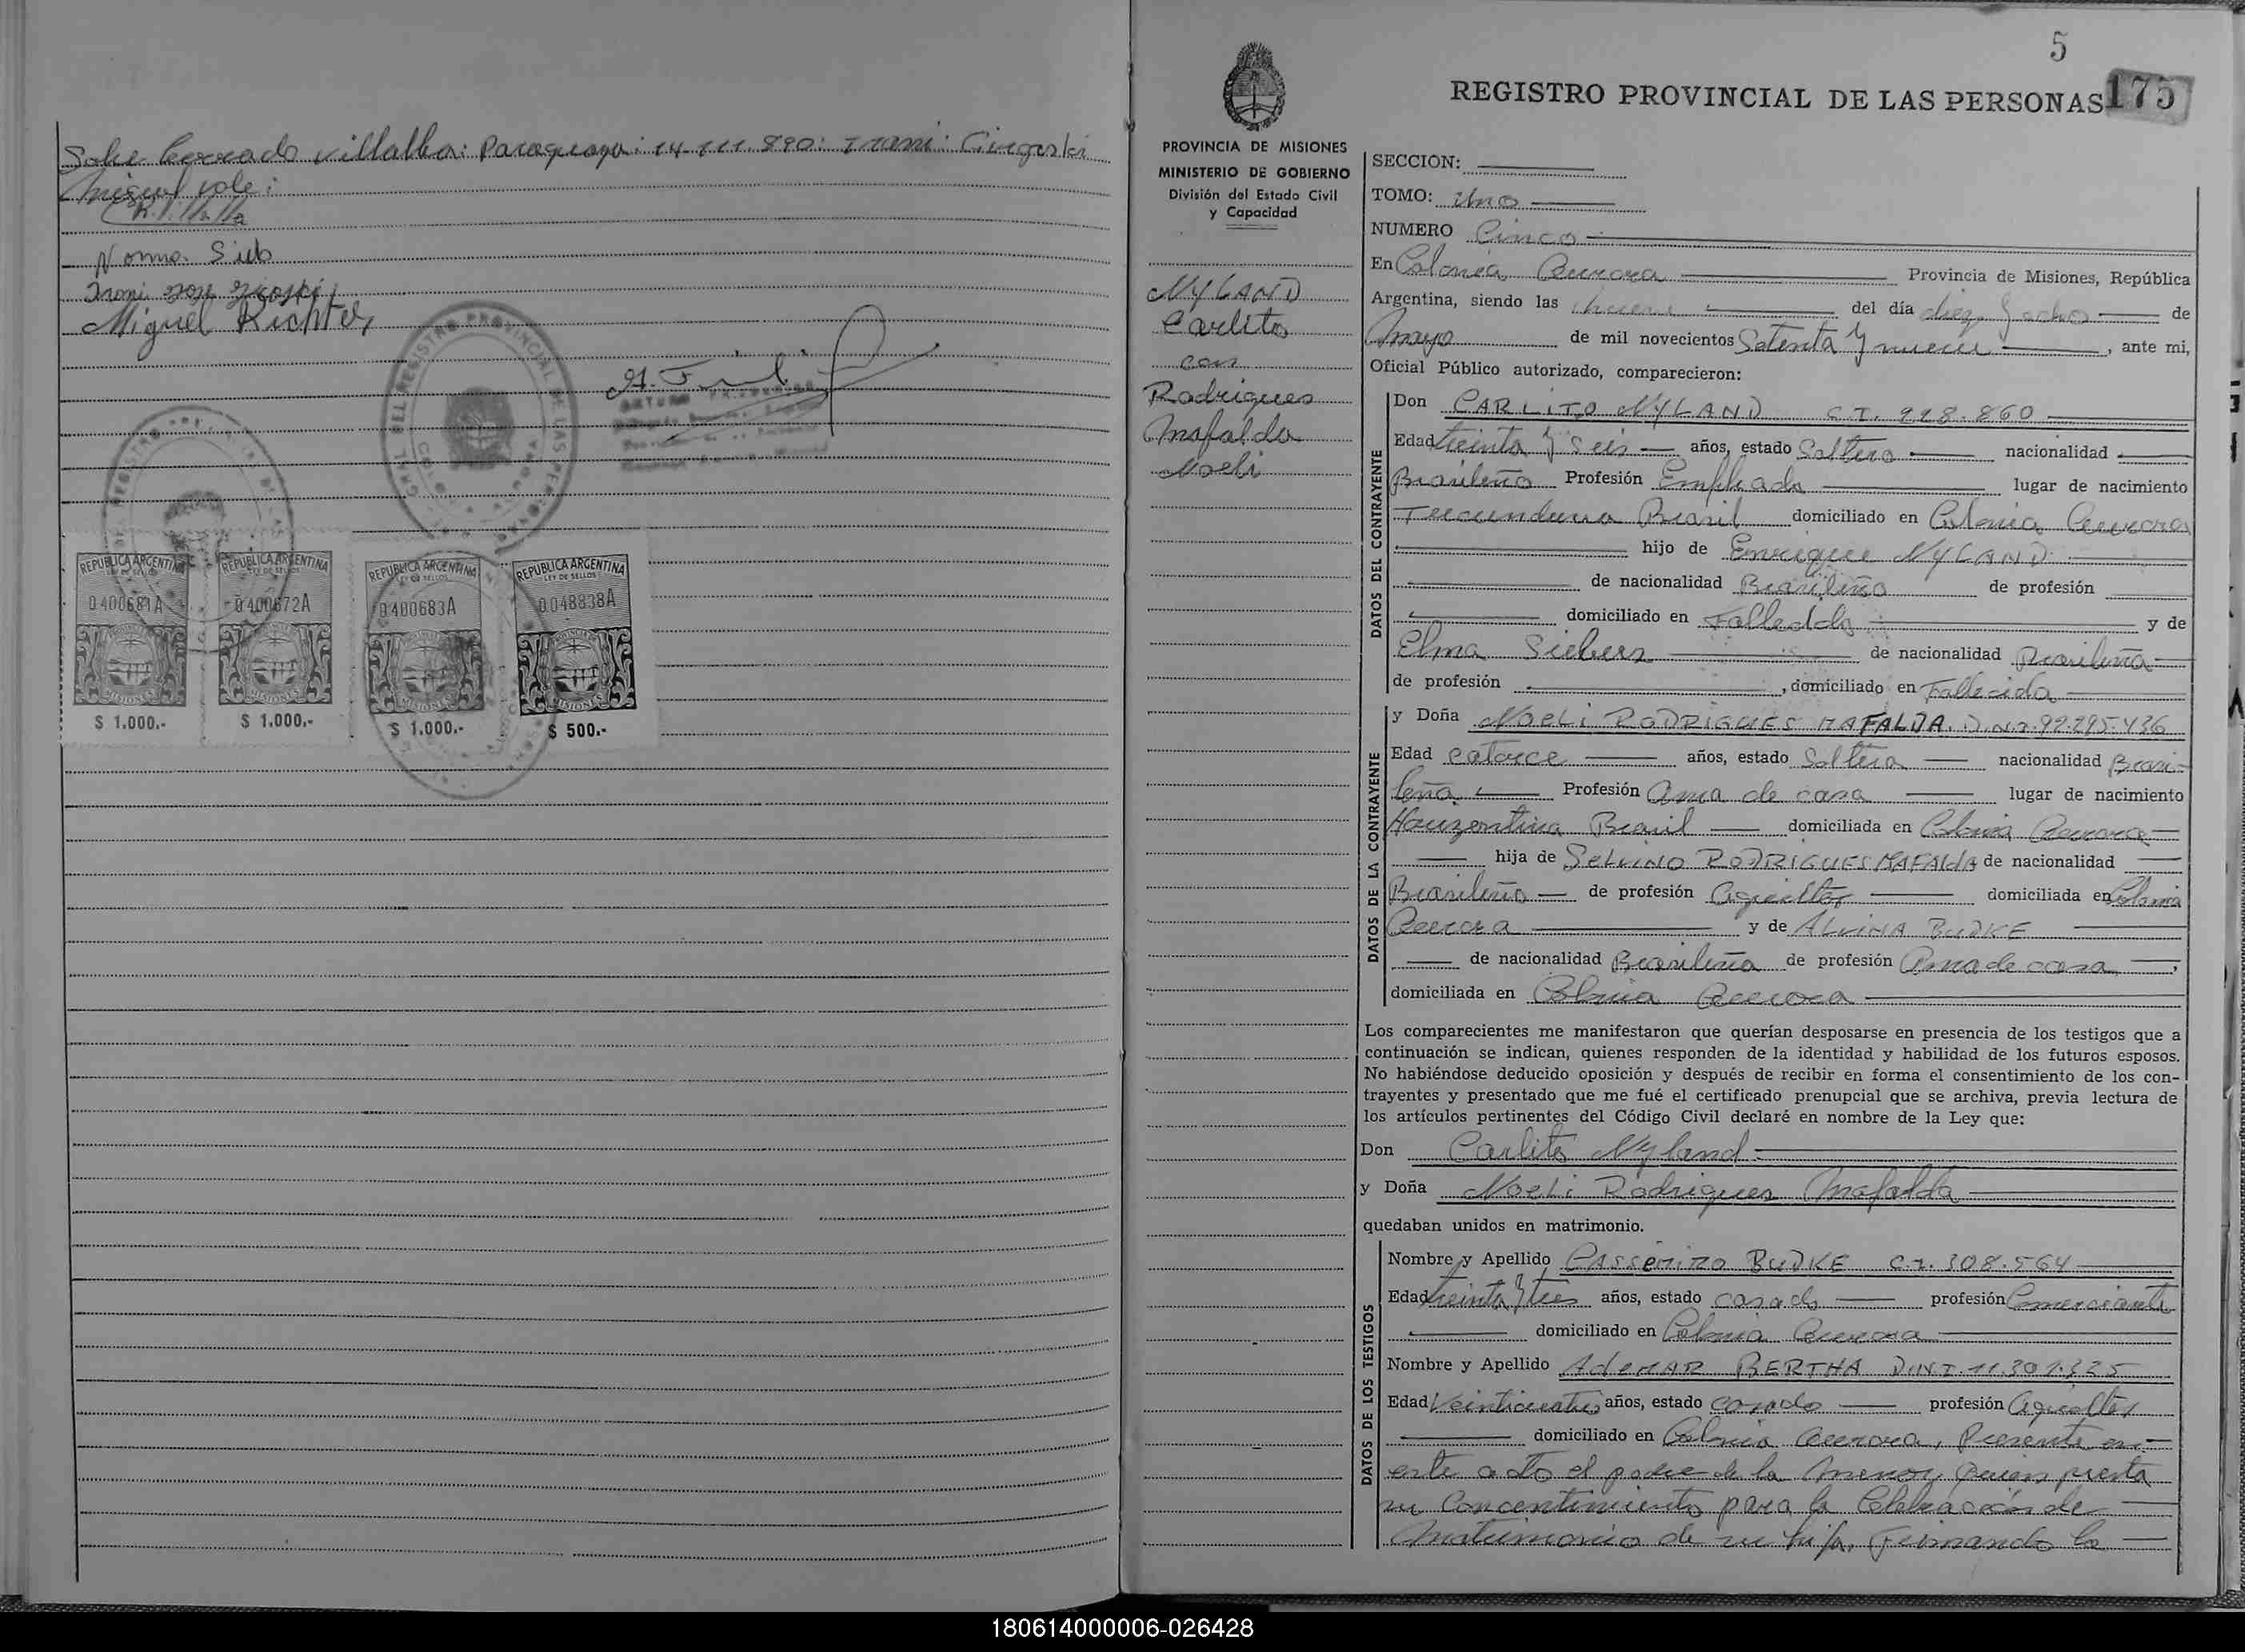 Sobre Cerrado Villalba: Paraguaya: 14.111.890: Irani:
Miguel vale:
R. Villalba
Norma Sieb
Miguel Richter
REPUBLICA ARGENTINA
LEY DE SELLOS
0400681A
MISIONES
$ 1.000.-
REPUBLICA ARGENTINA
LEY DE SELLOS
0400672A
MISIONES
$ 1.000.-
REPUBLICA ARGENTINA
LEY DE SELLOS
0400683A
MISIONES
$ 1.000.-
REPUBLICA ARGENTINA
LEY DE SELLOS
0048838A
MISIONES
$ 500.-
5
REGISTRO PROVINCIAL DE LAS PERSONAS 175
PROVINCIA DE MISIONES
MINISTERIO DE GOBIERNO
División del Estado Civil
y Capacidad
NYLAND
Carlito
con
Rodrigues
Mafalda
Noeli
SECCION:
TOMO: Uno
NUMERO Cinco
En Colonia Aurora Provincia de Misiones, República
Argentina, siendo las nueve del día diez y ocho de
Mayo de mil novecientos Setenta y nueve, ante mi,
Oficial Público autorizado, comparecieron:
DATOS DEL CONTRAYENTE
Don CARLITO NYLAND C.I. 928.860
Edad treinta y seis años, estado Soltero nacionalidad
Brasileño Profesión Empleado lugar de nacimiento
Tucunduva Brasil domiciliado en Colonia Aurora
hijo de Enrique NYLAND
de nacionalidad Brasileño de profesión
domiciliado en Fallecido y de
Elma Siebers de nacionalidad Brasileña
de profesión , domiciliado en Fallecida
DATOS DE LA CONTRAYENTE
y Doña NOELI RODRIGUES MAFALDA. D.N.I. 92.295.436
Edad catorce años, estado Soltera nacionalidad Brasi-
leña Profesión Ama de casa lugar de nacimiento
Horizontina Brasil domiciliada en Colonia Aurora
hija de SELVINO RODRIGUES MAFALDA de nacionalidad
Brasileño de profesión Agricultor domiciliada en Colonia
Aurora y de ALVINA BUDKE
de nacionalidad Brasileña de profesión Ama de casa,
domiciliada en Colonia Aurora
Los comparecientes me manifestaron que querían desposarse en presencia de los testigos que a
continuación se indican, quienes responden de la identidad y habilidad de los futuros esposos.
No habiéndose deducido oposición y después de recibir en forma el consentimiento de los con-
trayentes y presentado que me fué el certificado prenupcial que se archiva, previa lectura de
los artículos pertinentes del Código Civil declaré en nombre de la Ley que:
Don Carlito Nyland
y Doña Noeli Rodrigues Mafalda
quedaban unidos en matrimonio.
DATOS DE LOS TESTIGOS
Nombre y Apellido CASSEMIRO BUDKE C.I. 308.564
Edad treinta y tres años, estado casado profesión Comerciante
domiciliado en Colonia Aurora
Nombre y Apellido ADEMAR BERTHA D.N.I. 11.301.325
Edad Veinticuatro años, estado casado profesión Agricultor
domiciliado en Colonia Aurora, Presente en
este acto el padre de la menor, quien presta
su Concentimiento para la Celebración de
Matrimonio de su hija, Firmando la
180614000006-026428